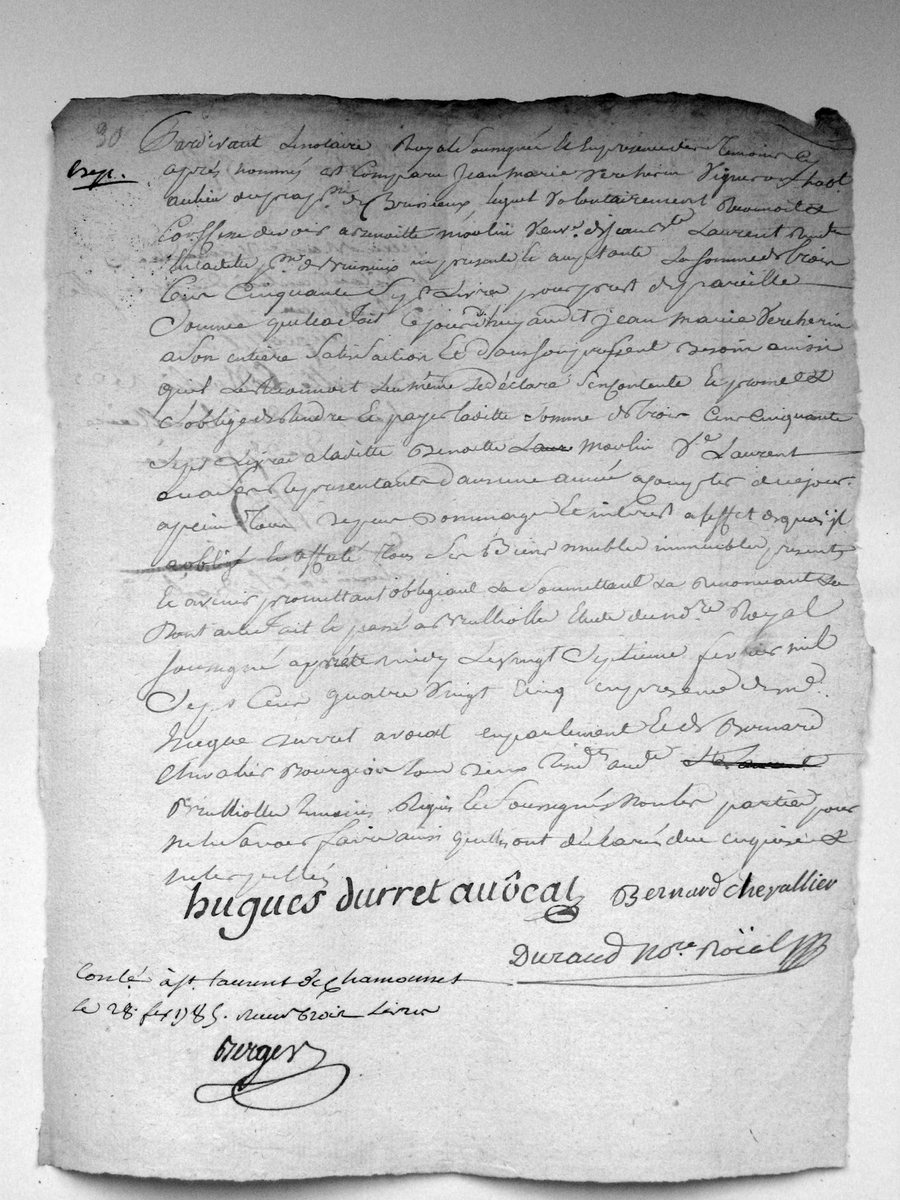 30
Exp.
Pardevant Le notaire Royal Soussigné Et En presence des Temoins cy
après nommés est Comparu Jean Marie Vercherin Vigneron habt
au lieu de par.sse de Brussieux lequel Volontairement Reconnoit et
Confesse devoir a Benoitte Moulin Veuve de Jean Laurent
en ladite p.sse de Brussieux icy presente et acceptante La Somme de trois
Cent Cinquante Sept Livres pour prest de pareille
Somme qu'elle a fait cejourd'huy audit Jean Marie Vercherin
a Son entière Satisfaction Et dans Son present Besoin ainsi
qu'il Le Reconnoit Luy même Se déclare S'en Contente Et promet et
S'oblige de Rendre Et payer ladite Somme de trois Cent Cinquante
Sept Livres a ladite Benoitte Laur Moulin V.e Laurent
ou a Ses Representants dans une année a Compter de ce jour
a peine de Tous depens Dommages Et interest a l'effet de quoi il
a obligé Et affecté Tous Ses Biens meubles immeubles presents
Et avenir promettant obligeant Se Soumettant Et Renonceant &a
Dont acte fait Et passé a Brulliolle Etude du no.re Royal
Soussigné après midy Le vingt Septieme fevrier mil
Sept Cent quatre Vingt Cinq en presence de m.e
hugue durret avocat en parlement Et de S.r Bernard
Chevalier Bourgeois tous deux audit
Brulliolle temoins Requis Et Soussignés non les parties pour
ne le Savoir faire ainsi qu'elles ont déclarés de ce enquises &
interpellées
hugues durret avôcat Bernard chevallier
Durand No.re Roïal
Con.lé à st. laurent de Chamousset
le 28. fev. 1785. Reçu trois Livres
Berger